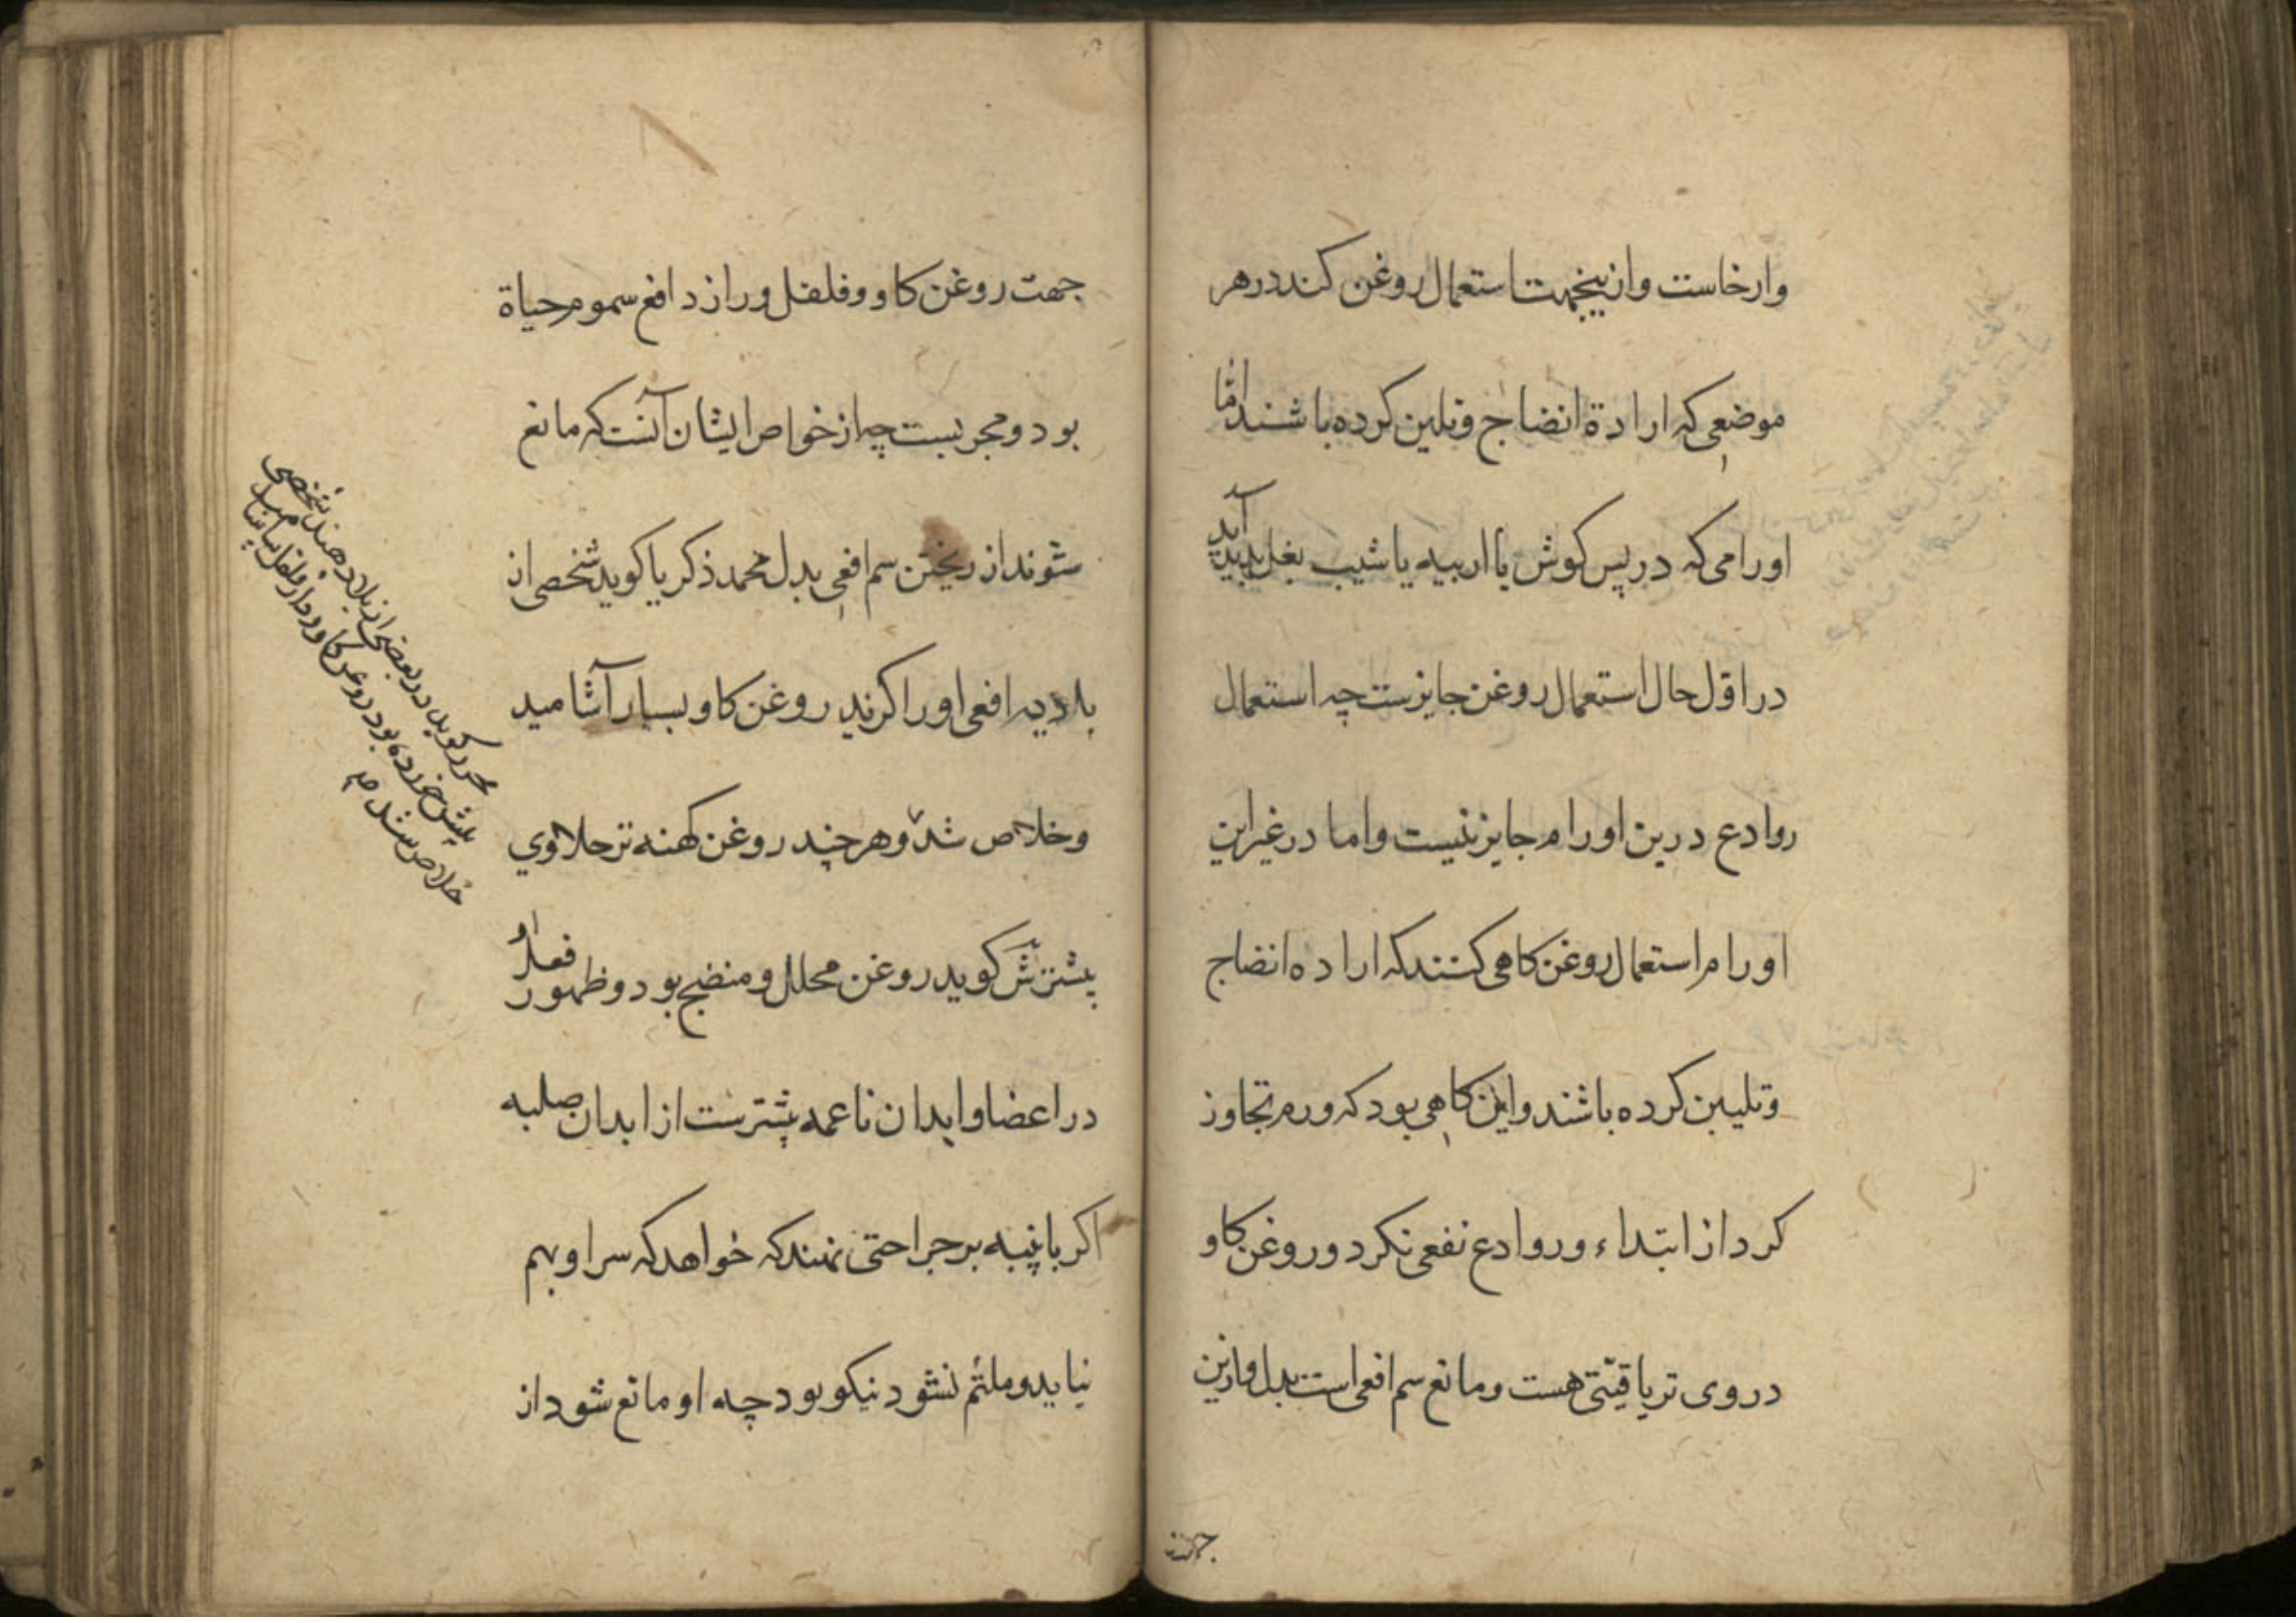 وارخاست وازینجهت استعمال روغن کنند در هر
موضعی که ارادة انضاج وتلین کرده باشند امّا
اورامی که در پس کوش یا اربیه یا شیب بغل پدید آید
در اوّل حال استعمال روغن جایزست چه استعمال
روادع درین اورام جایز نیست واما در غیر این
اورام استعمال روغن کاهی کنند که اراده انضاج
وتلیین کرده باشند واین کاهی بود که ورم تجاوز
کرد از ابتداء وروادع نفعی نکرد وروغن کاو
دروی تریاقیّتی هست ومانع سم افعی است بدل وازین
جهت
جهت روغن کاو وفلفل وراز دافع سموم حیاة
بود ومجربست چه از خواص ایشان آنست که مانع
شوند از ریختن سم افعی بدل محمد ذکریا کوید شخصی از
بادیه افعی اورا کزید روغن کاو بسیار آشامید
وخلاص شد وهر چند روغن کهنه تر حلاوی
پیشتر ش کوید روغن محلل ومنضج بود وظهور فعل او
در اعضا وابدان ناعمه پیشترست از ابدان صلبه
اکر با پنبه بر جراحتی نهند که خواهد که سر او بهم
نیاید وملتئم نشود نیکو بود چه او مانع شود از
محرر کوید در بعضی از بلاد هند شخصی
بیش خورده بود روغن کاو ودار فلفل
خلاص شد